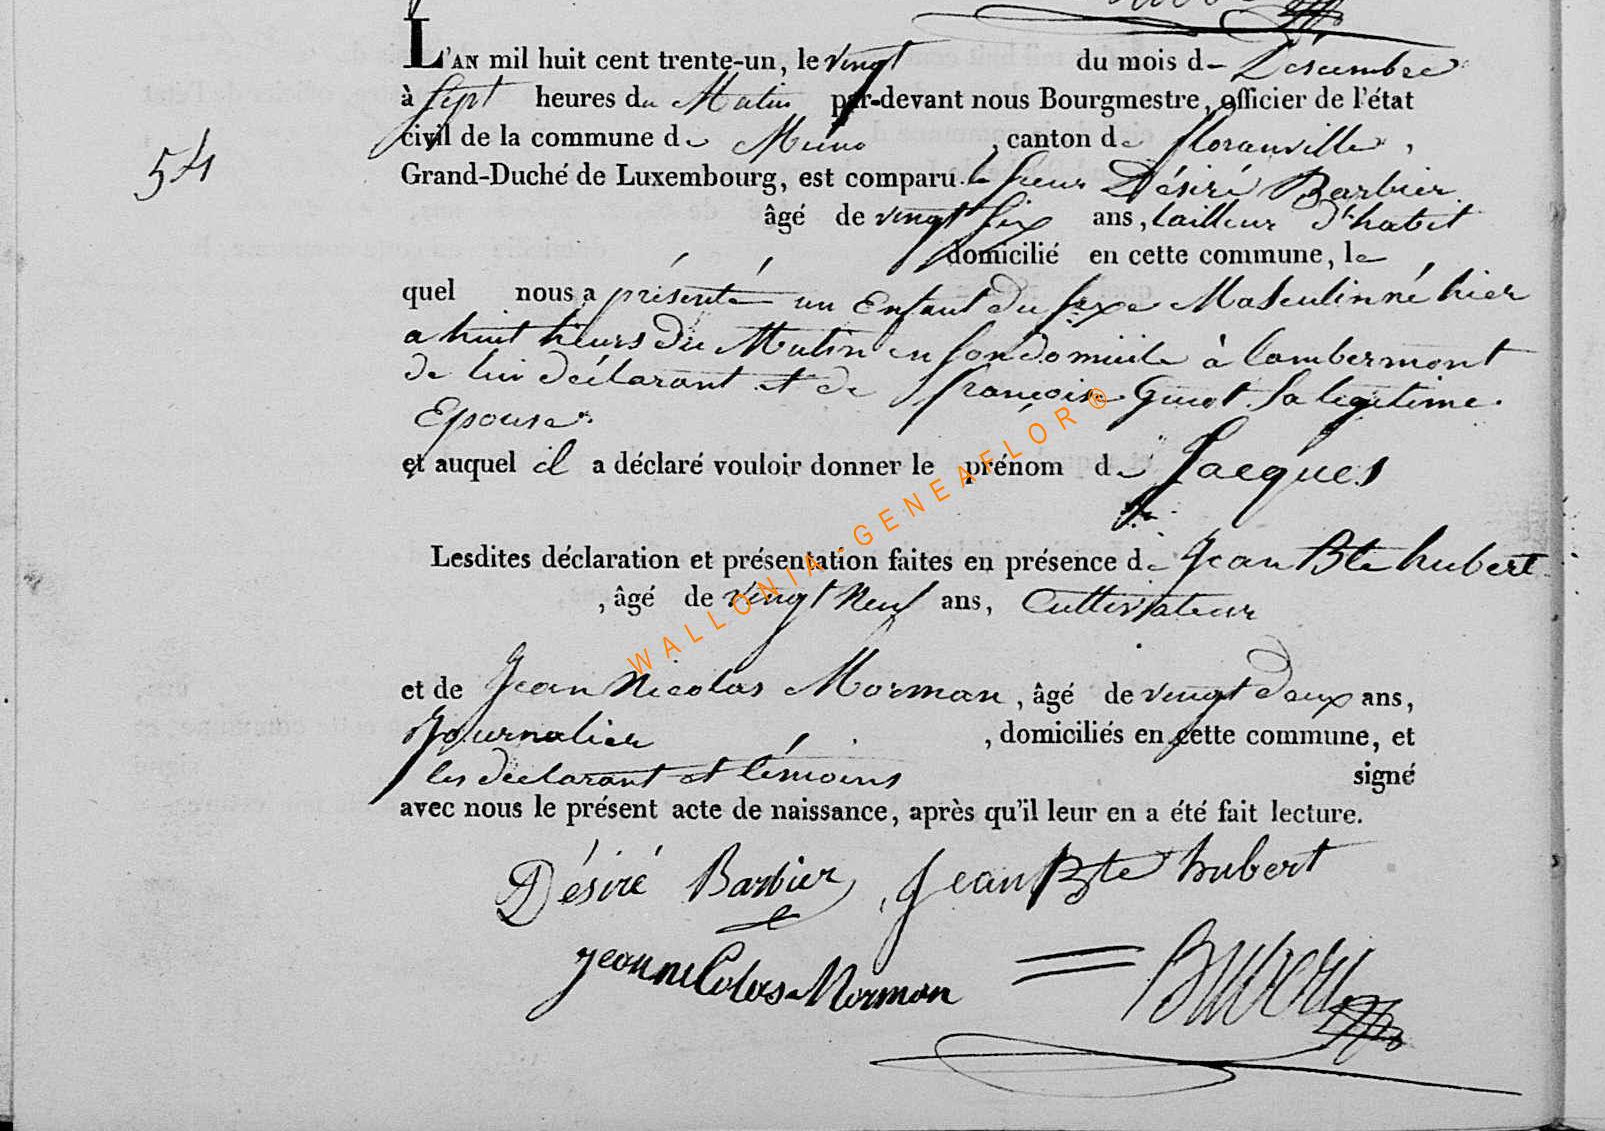 L'AN mil huit cent trente-un, le vingt du mois d- Désembre
à sept heures du Matin par-devant nous Bourgmestre, officier de l'état
civil de la commune de Muno, canton de floranville,
54
Grand-Duché de Luxembourg, est comparu le sieur Désiré Barbier
âgé de vingt six ans, tailleur d'habit
domicilié en cette commune, le
quel nous a présenté un Enfant du sexe Masculin né hier
a huit heurs du Matin en son domicile à lambermont
de lui déclarant et de françoise Guiot sa legitime
Epouse.
et auquel il a déclaré vouloir donner le prénom de Jacques
Lesdites déclaration et présentation faites en présence de Jean Bte hubert
, âgé de vingt Neuf ans, Cultivateur
et de Jean Nicolas Morman, âgé de vingt deux ans,
Journalier, domiciliés en cette commune, et
les déclarant et témoins signé
avec nous le présent acte de naissance, après qu'il leur en a été fait lecture.
Désiré Barbier, Jean Bte hubert
jean niColas Morman
WALLONIA-GENEAFLOR®